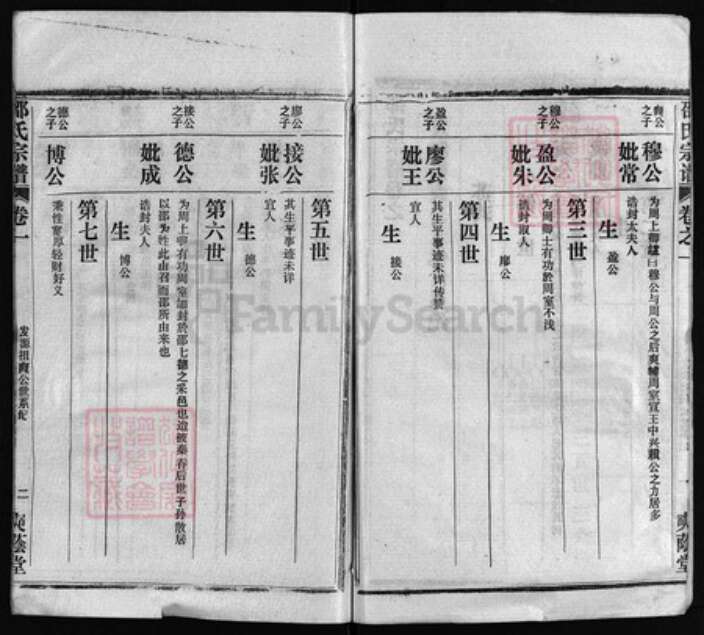 邵氏宗谱
卷之一
爽蔭堂
爽公之子
穆公
为周上卿諡曰穆公与周公之后爽輔周室宣王中兴輯公之力居多
妣常
诰封太夫人
生
盈公
第三世
穆公之子
盈公
为周卿士有功於周室不浅
妣朱
诰封淑人
生
廖公
第四世
盈公之子
廖公
其生平事迹未详传赞
妣王
宜人
生
接公
第五世
廖公之子
接公
其生平事迹未详
妣张
宜人
生
德公
第六世
接公之子
德公
为周上卿有功周室加封於邵七德之采邑也迨被秦吞后世子孙散居
以邵为姓此由召而邵所由来也
妣成
诰封夫人
生
博公
第七世
德公之子
博公
秉性奮厚轻财好义
邵氏宗谱
卷一
发源祖爽公世系纪
二
爽蔭堂
FamilySearch